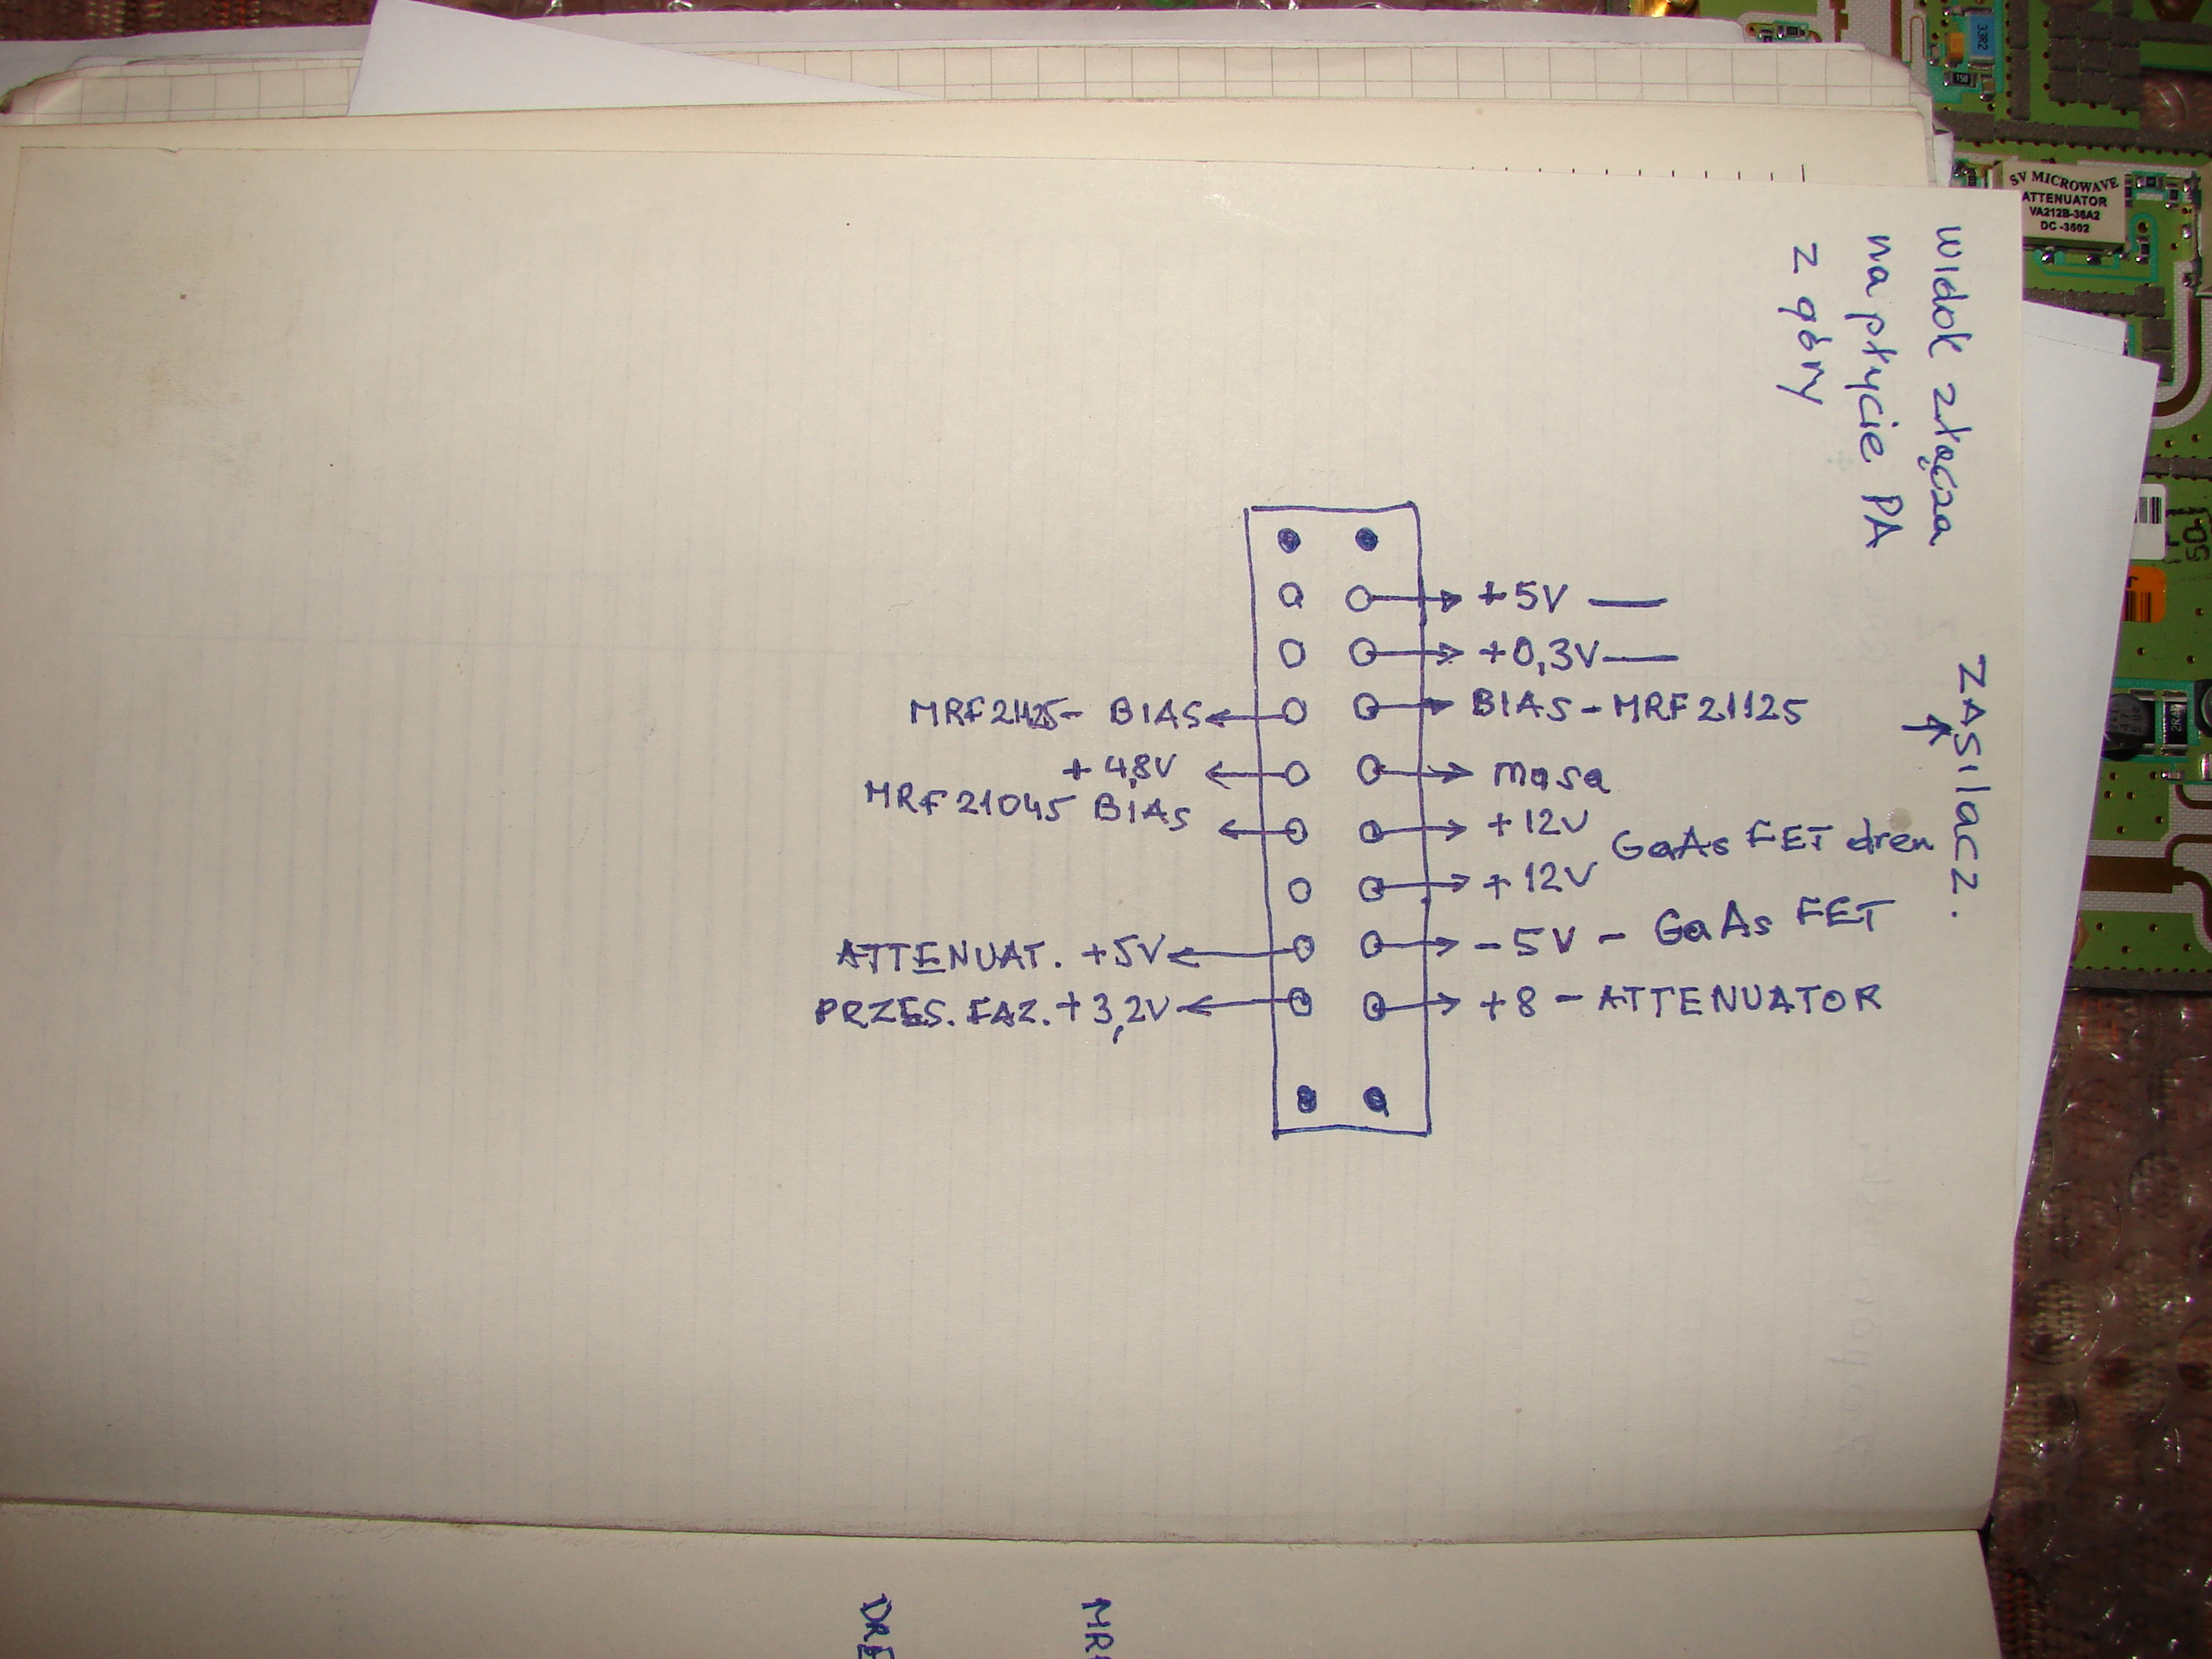 widok złącza
na płycie PA
z góry
ZASilacz.
+5V —
+0,3V —
MRF21125 - BIAS
BIAS - MRF21125
+ 4,8V
masa
MRF 21045 BIAS
+12V
GaAs FET dren
+12V
-5V - GaAs FET
ATTENUAT. +5V
PRZES. FAZ. + 3,2V
+8 - ATTENUATOR
DRE
MR
SV MICROWAVE
ATTENUATOR
VA212B-36A2
DC -3502
33R2
150
50